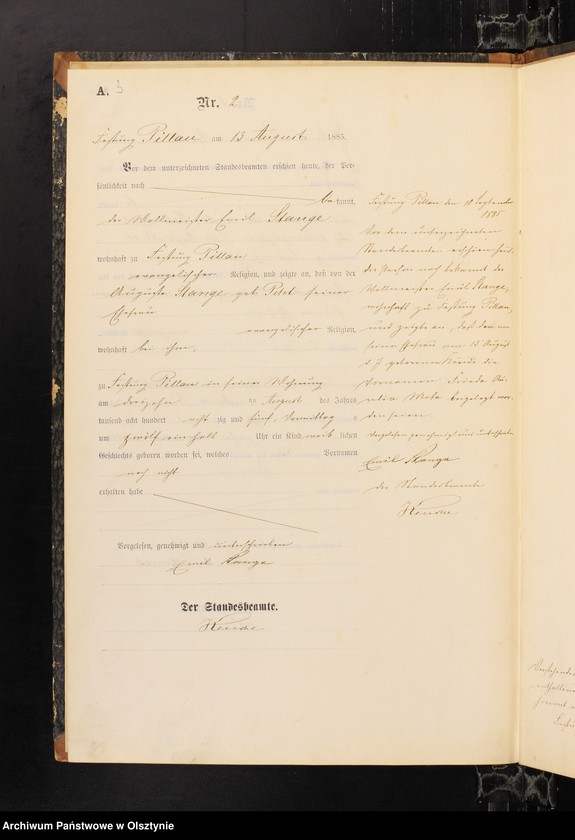 A. 3
Nr. 2.
Festung Pillau am 13 August 1885.
Vor dem unterzeichneten Standesbeamten erschien heute, der Per-
sönlichkeit nach
be kannt,
der Wallmeister Emil Stange
wohnhaft zu Festung Pillau
evangelischer Religion, und zeigte an, daß von der
Auguste Stange geb seiner
Ehefrau
evangelischer Religion,
wohnhaft bei ihm,
zu Festung Pillau in seiner Wohnung
am dreizehn ten August des Jahres
tausend acht hundert acht zig und fünf, Vormittag s
um zwölf ein halb Uhr ein Kind weib lichen
Geschlechts geboren worden sei, welches Vornamen
noch nicht
erhalten habe
Vorgelesen, genehmigt und unterschrieben
Emil Stange
Der Standesbeamte.
Festung Pillau den 18 September
1885
Vor dem unterzeichneten
Standesbeamten erschien heute
der Person nach bekannt der
Wallmeister Emil Stange,
wohnhaft zu Festung Pillau,
und zeigte an, daß dem von
seiner Ehefrau am 13 August
d. J. geborenen Kinde die
Vornamen Frieda
Meta beigelegt wor-
den seien.
Vorgelesen genehmigt und unterschrieben
Emil Stange
der Standesbeamte
Archiwum Państwowe w Olsztynie